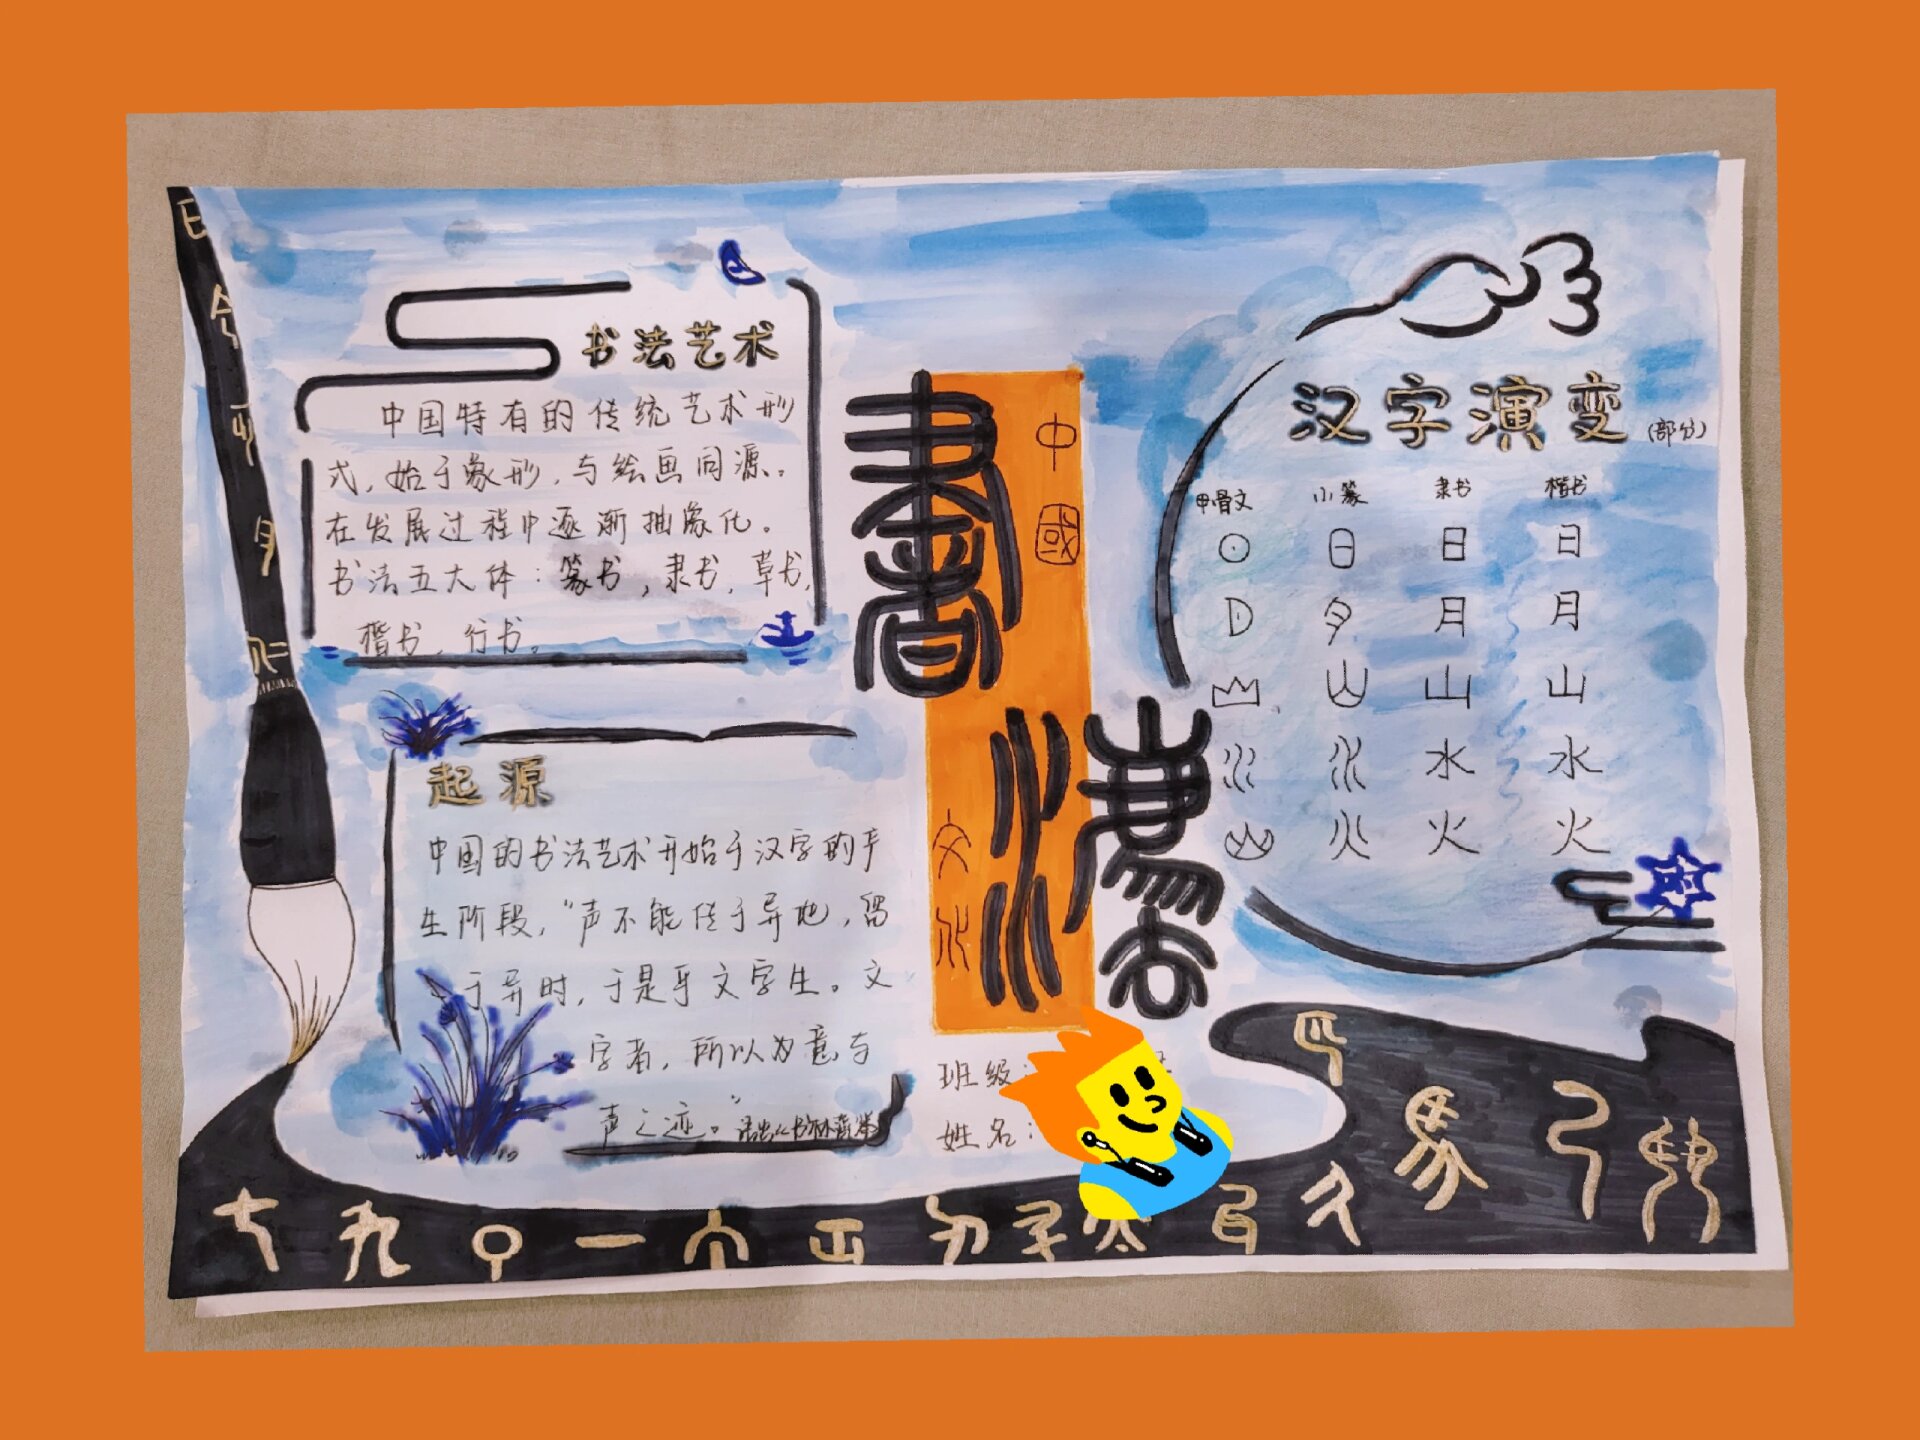 书法艺术
中国特有的传统艺术形
式，始于象形，与绘画同源。
在发展过程中逐渐抽象化。
书法五大体：篆书，隶书，草书，
楷书，行书。
起源
中国的书法艺术开始于汉字的产
生阶段，“声不能传于异地，留
于异时，于是乎文字生。文
字者，所以为意与
声之迹。”
書
灋
中
國
文
化
汉字演变(部分)
甲骨文 小篆 隶书 楷书
日 日
月 月
山 山
水 水
火 火
班级：
姓名：